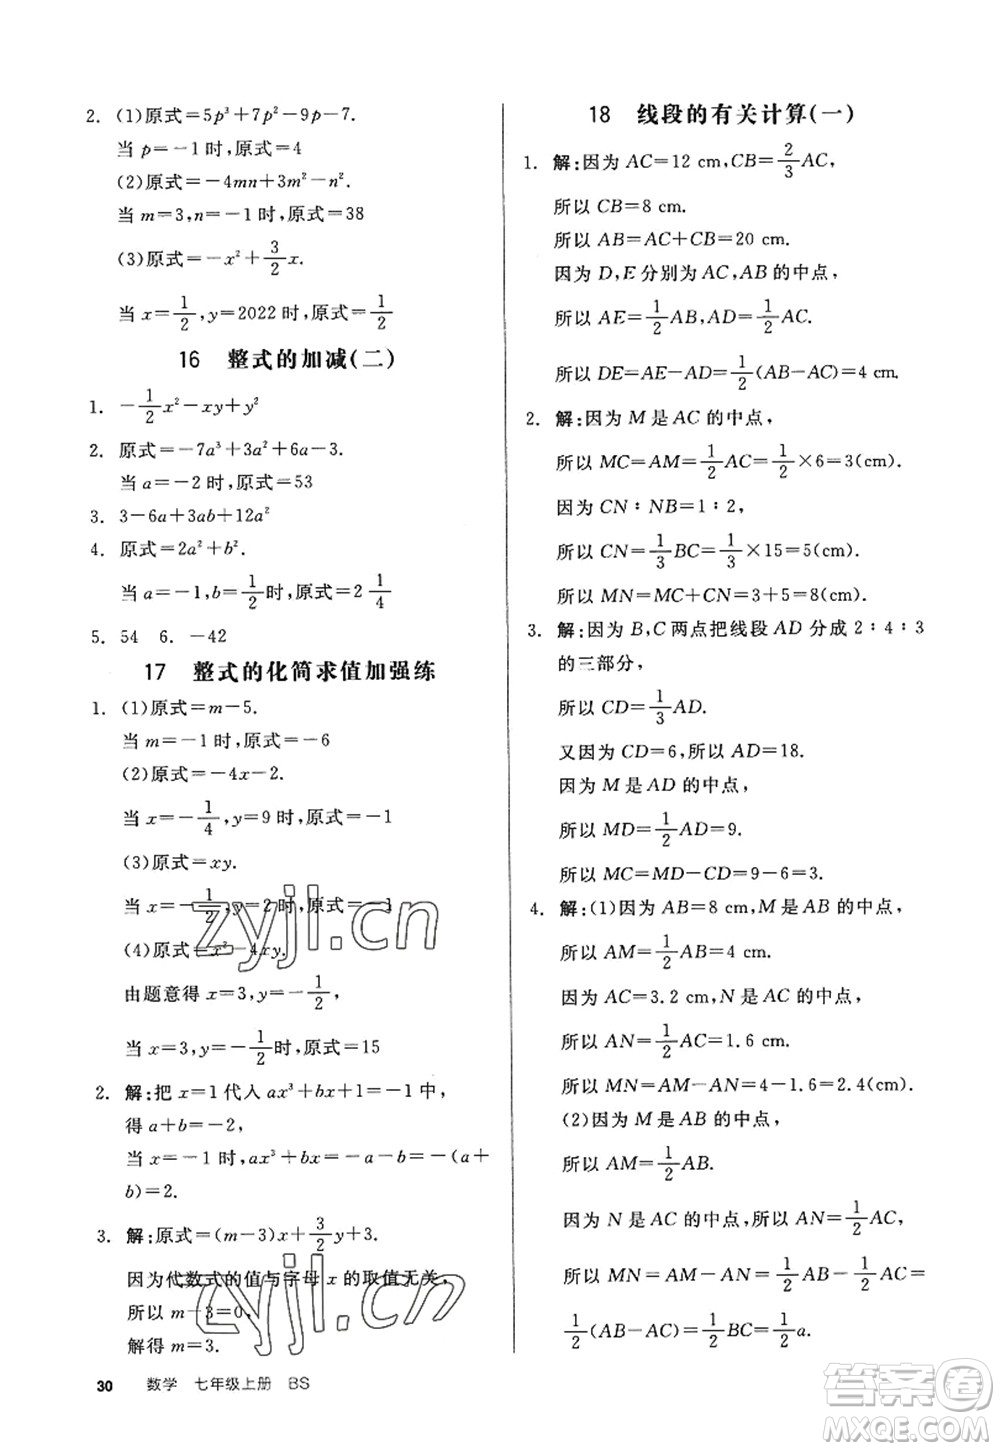 2. (1)原式=5p³+7p²-9p-7.
当 p=-1时,原式=4
(2)原式=-4mn+3m²-n².
当 m=3,n=-1时,原式=38
(3)原式=-x²+3/2x.
当 x=1/2,y=2022时,原式=1/2
16 整式的加减(二)
1. -1/2x²-xy+y²
2. 原式=-7a³+3a²+6a-3.
当 a=-2时,原式=53
3. 3-6a+3ab+12a²
4. 原式=2a²+b².
当 a=-1,b=1/2时,原式=2 1/4
5. 54 6. -42
17 整式的化简求值加强练
1. (1)原式=m-5.
当 m=-1时,原式=-6
(2)原式=-4x-2.
当 x=-1/4,y=9时,原式=-1
(3)原式=xy.
当 x=-1/2,y=2时,原式=-1
(4)原式=x²-4xy.
由题意得 x=3,y=-1/2,
当 x=3,y=-1/2时,原式=15
2. 解:把 x=1代入 ax³+bx+1=-1中,
得 a+b=-2,
当 x=-1时,ax³+bx=-a-b=-(a+
b)=2.
3. 解:原式=(m-3)x+3/2y+3.
因为代数式的值与字母 x 的取值无关,
所以 m-3=0,
解得 m=3.
30 数学 七年级上册 BS
18 线段的有关计算(一)
1. 解:因为 AC=12 cm,CB=2/3AC,
所以 CB=8 cm.
所以 AB=AC+CB=20 cm.
因为 D,E分别为 AC,AB的中点,
所以 AE=1/2AB,AD=1/2AC.
所以 DE=AE-AD=1/2(AB-AC)=4 cm.
2. 解:因为 M 是 AC的中点,
所以 MC=AM=1/2AC=1/2×6=3(cm).
因为 CN∶NB=1∶2,
所以 CN=1/3BC=1/3×15=5(cm).
所以 MN=MC+CN=3+5=8(cm).
3. 解:因为 B,C两点把线段 AD 分成 2∶4∶3
的三部分,
所以 CD=1/3AD.
又因为 CD=6,所以 AD=18.
因为 M 是 AD 的中点,
所以 MD=1/2AD=9.
所以 MC=MD-CD=9-6=3.
4. 解:(1)因为 AB=8 cm,M 是 AB 的中点,
所以 AM=1/2AB=4 cm.
因为 AC=3.2 cm,N 是 AC 的中点,
所以 AN=1/2AC=1.6 cm.
所以 MN=AM-AN=4-1.6=2.4(cm).
(2)因为 M 是 AB 的中点,
所以 AM=1/2AB.
因为 N 是 AC 的中点,所以 AN=1/2AC,
所以 MN=AM-AN=1/2AB-1/2AC=
1/2(AB-AC)=1/2BC=1/2a.
zyjl.cn
zyjl.cn
答案圈
MXQE.COM